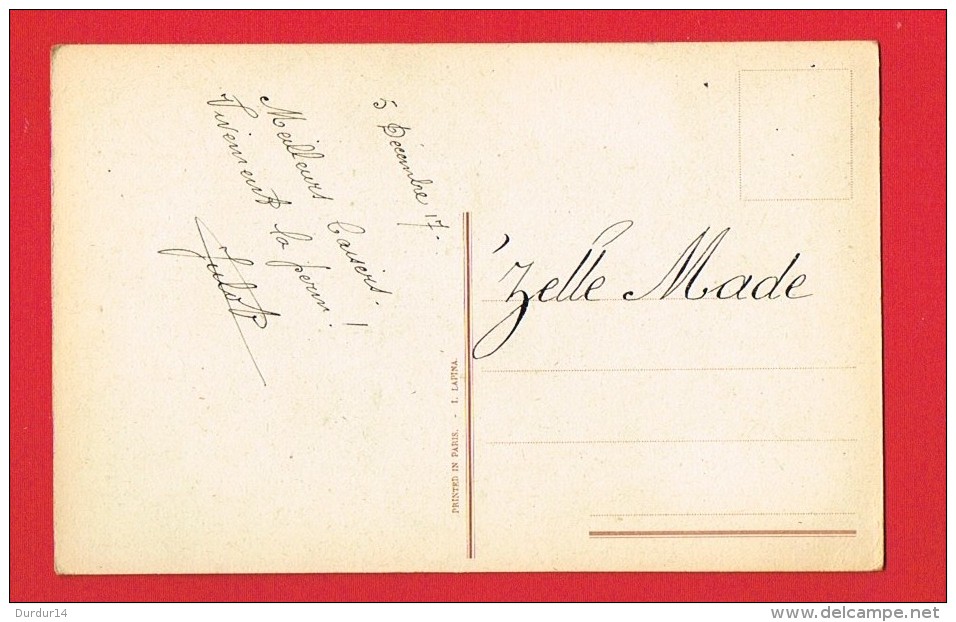 5 Décembre 17.
Meilleurs baisers.
Vivement la perm!
Julot
'Zelle Made
PRINTED IN PARIS. - I. LAPINA.
Durdur14
www.delcampe.net